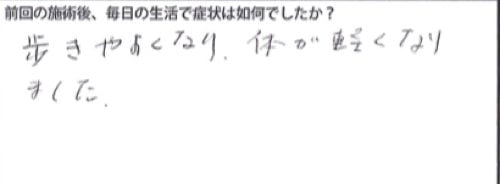 前回の施術後、毎日の生活で症状は如何でしたか？
歩きやすくなり、体が軽くなり
ました。